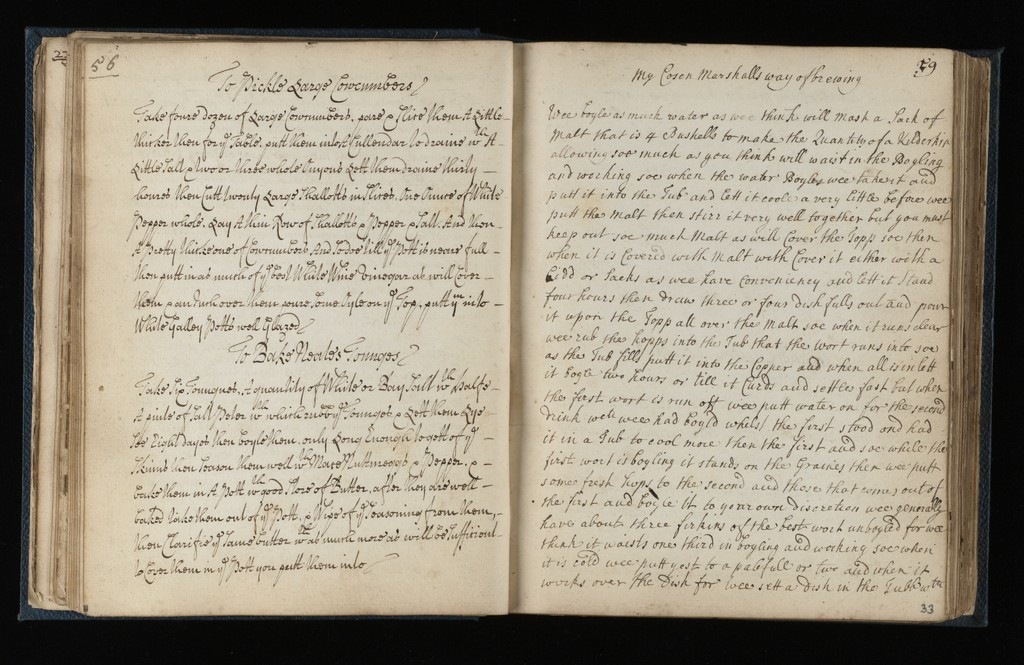 27
56
To Pickle Large Cowcumbers
Take foure dozen of Large Cowcumbers, pare & slice them A Little
thicker then for yͤ Table, putt them into A Cullendar to draine wͭͪ A
Little Salt & two or three whole Onyons Lett them draine thirty
houres then Cutt twenty Large Shallotts in slices, One Ounce of White
Pepper whole, Lay A thin Row of Shallotts & Pepper & Salt, And then
A Pretty thicke one of Cowcumbers And so doe till yͤ Pott is neare full
then putt in as much of yͤ best White Wine Vinegar as will Cover
them & an Inch over them poure some Oyle on yͤ Top, putt yͫ into
White Galley Potts well Glazed
To Bake Neates Tounges
Take Six Tounges, A quantity of White or Bay Salt wͭͪ halfe
A pinte of Salt Peter wͭͪ which rub yͤ Tounges & Lett them Lye
soe Eight dayes then boyle them, only Long Enough to gett of yͤ
Skinns then season them well wͭͪ Mace Nuttmeggs & Pepper, &
bake them in A Pott wͭͪ good store of Butter, after they are well
baked take them out of yͤ Pott, & Wipe of yͤ seasoning from them,
then Clarifie yͤ same butter wͭͪ as much more as will be sufficient
to Cover them in yͤ Pott you putt them into
59
My Cosen Marshalls way of brewing
Wee boyle as much water as wee think will mash a Sack of
Malt that is 4 Bushells to make the Quantity of a Kilderkin
allowing soe much as you think will waist in the Boyling
and working soe when the water Boyles wee take it and
putt it into the Tub and lett it coole a very little before wee
putt the Malt then stirr it very well together but you must
keep out soe much Malt as will Cover the Topp soe then
when it is Coverid with Malt with Cover it either with a
Lidd or Sacks as wee have Conveniency and lett it stand
four hours then draw three or four dish fulls out and pour
it upon the Topp all over the Malt soe when it runs clear
wee rub the hopps into the Tub that the wort runs into soe
as the Tub fills putt it into the Copper and when all is in lett
it boyle two hours or till it Curds and settles fast but when
the first wort is run off wee putt water on for the second
drink well wee had boyld whilst the first stood and had
it in a Tub to cool more then the first and soe while the
first wort is boyling it stands on the Graines then wee putt
some fresh hops to the second and those that comes out of
the first and boyle it to your own discretion wee generally
have about three firkins of the best wort unboyled for wee
think it waists one third in boyling and working soe when
it is cold wee putt yest to a palefull or two and when it
works over the Dish for wee sett a dish in the Tubb wͭͪ
33